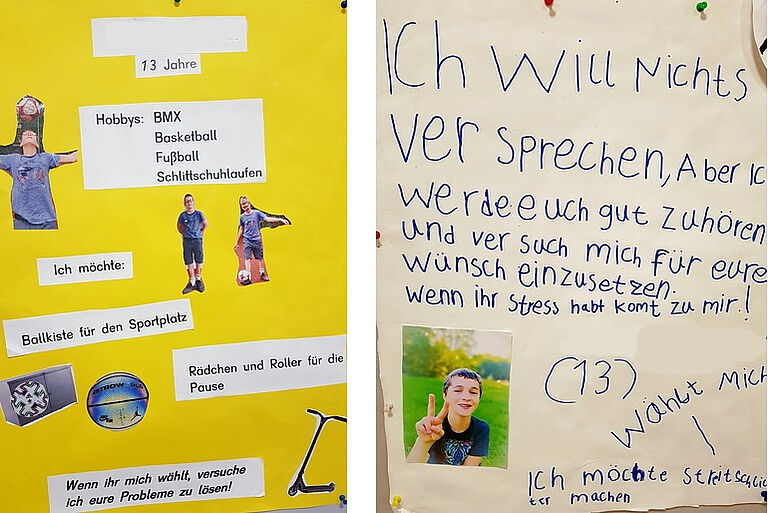 13 Jahre
Hobbys: BMX
Basketball
Fußball
Schlittschuhlaufen
Ich möchte:
Ballkiste für den Sportplatz
Rädchen und Roller für die
Pause
Wenn ihr mich wählt, versuche
ich eure Probleme zu lösen!
ICH Will Nichts
ver sprechen, Aber Ic
werde euch gut zuhören
und ver such mich für eure
Wünsch einzusetzen.
Wenn ihr Stress habt komt zu mir!
(13)
Wählt Mich
!
Ich möchte Streitschlic
ter machen